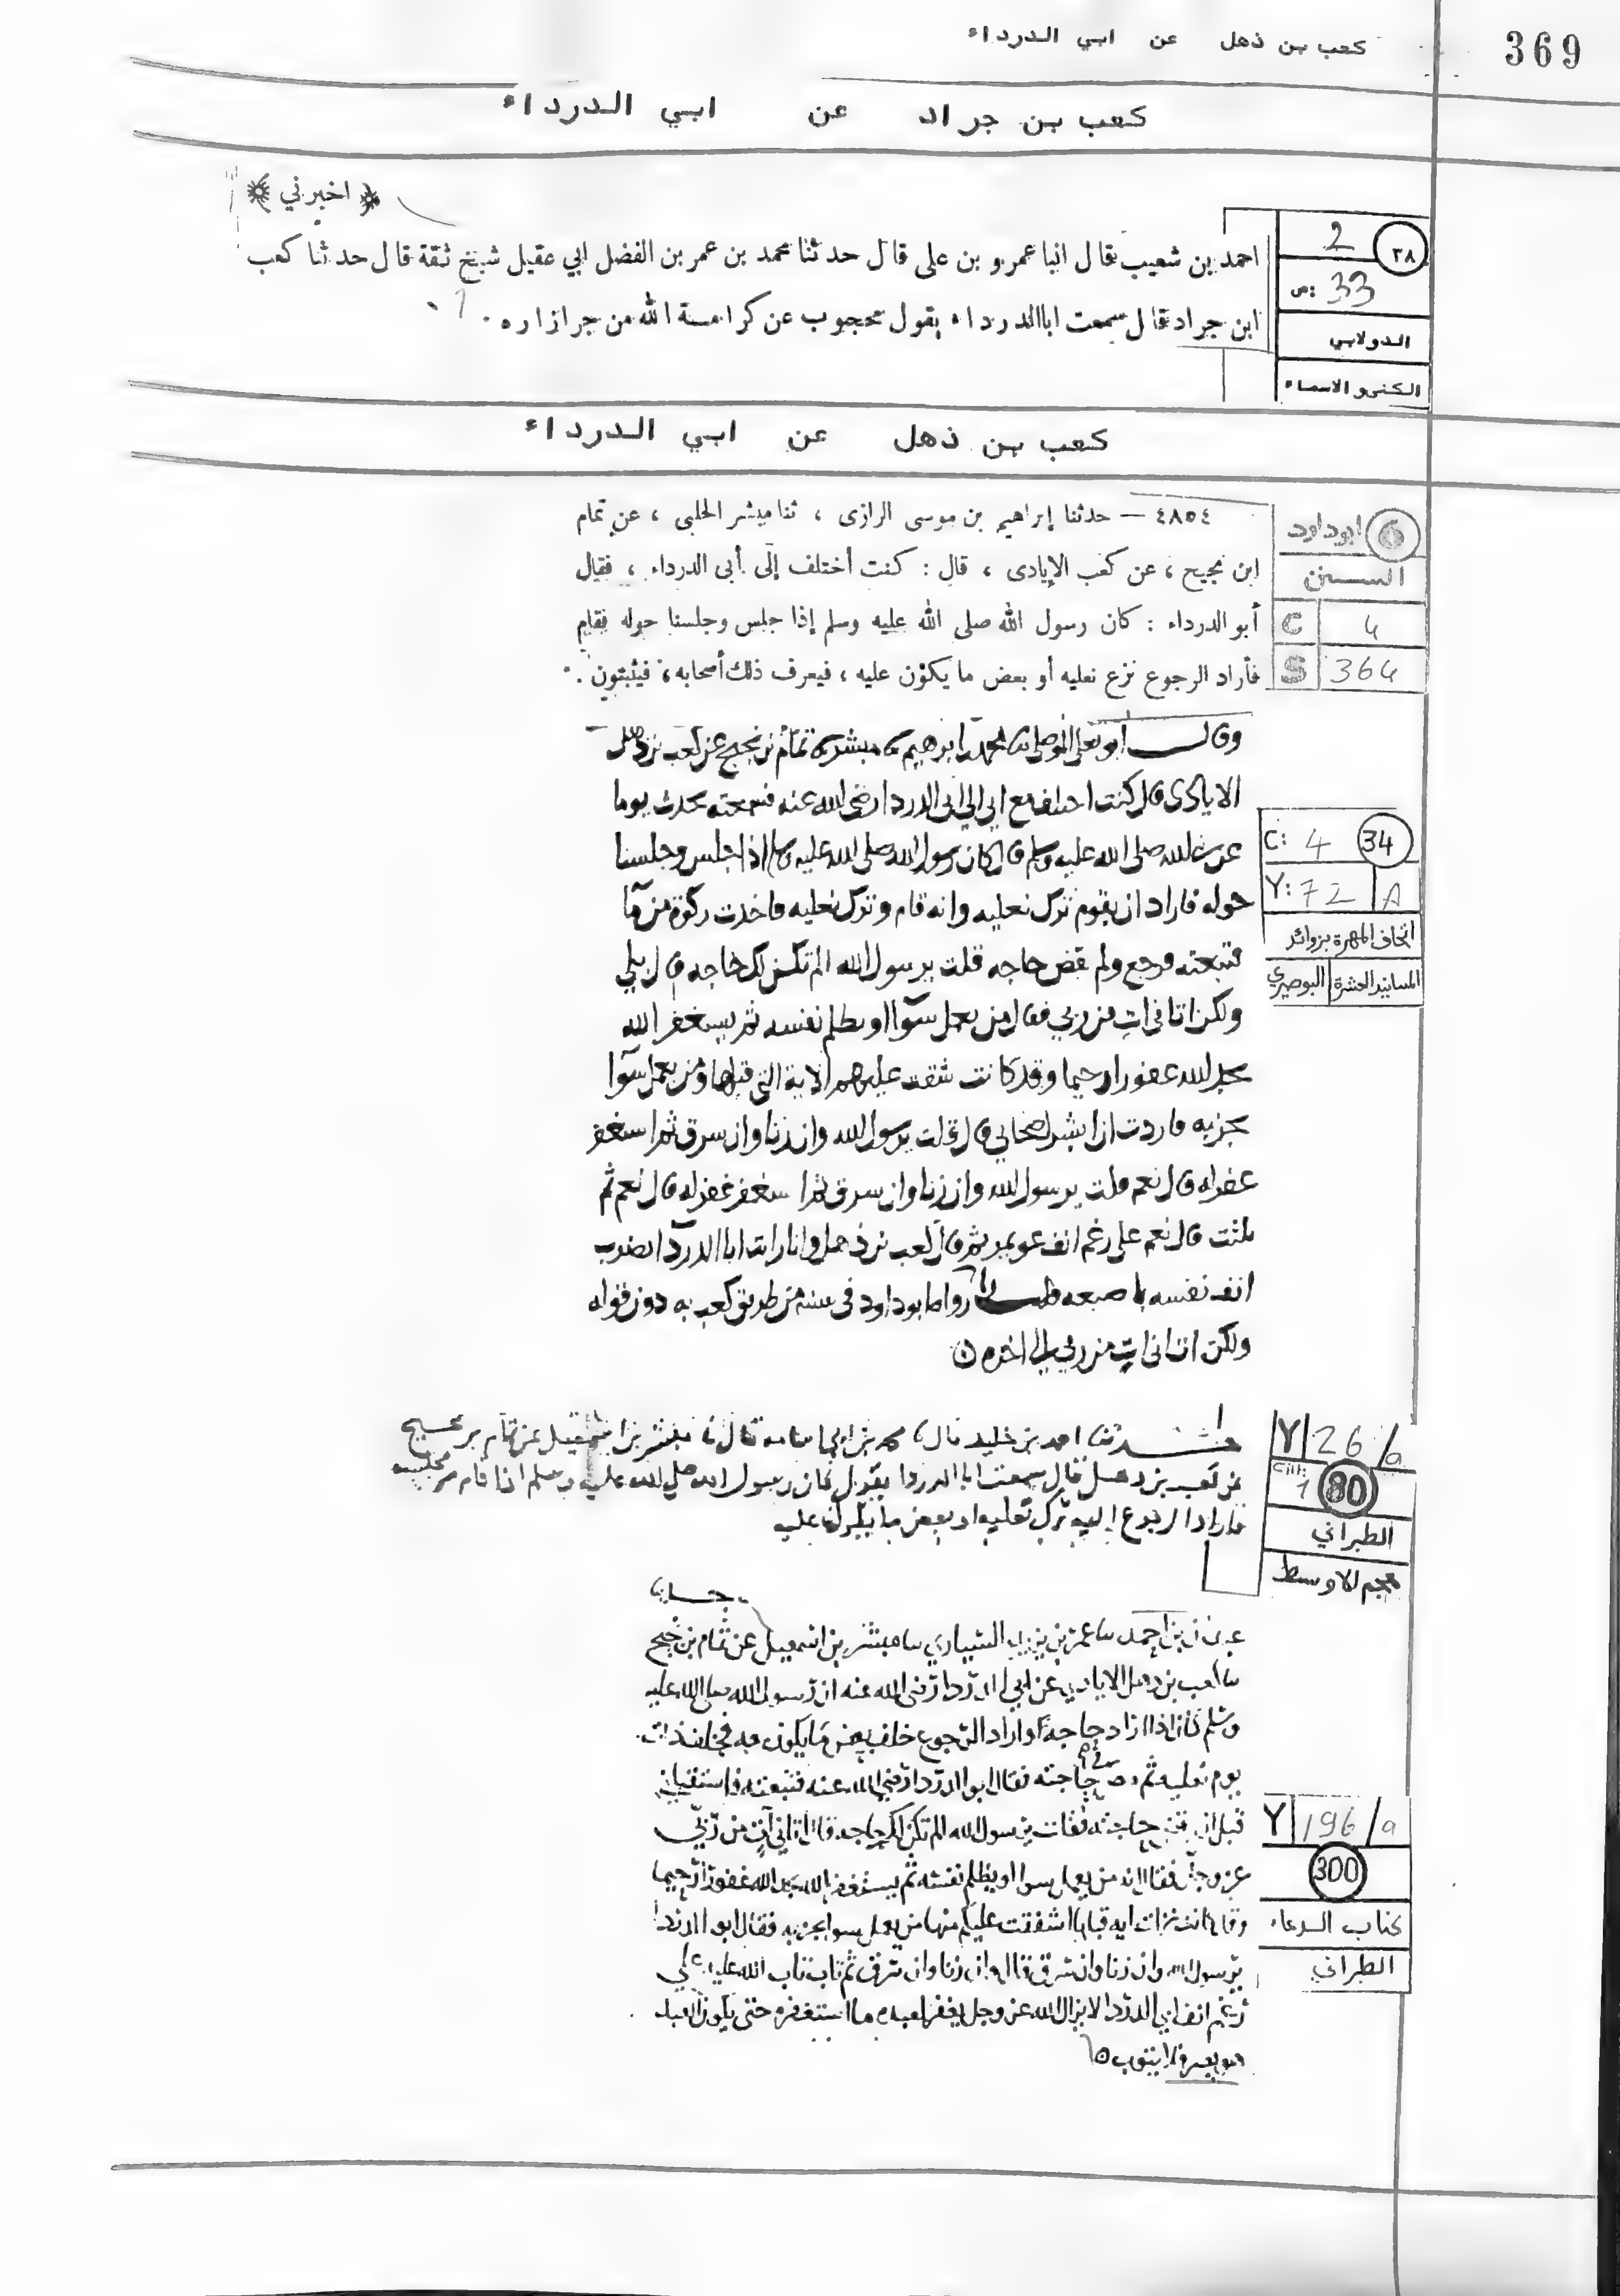 369
كعب بن ذهل عن ابي الدرداء
كعب بن جراد عن ابي الدرداء
﴿ اخبرني ﴾
احمد بن شعيب قال انبا عمرو بن على قال حدثنا محمد بن عمر بن الفضل ابي عقيل شيخ ثقة قال حدثنا كعب
ابن جراد قال سمعت ابا الدرداء يقول محجوب عن كرامة الله من جر ازاره .
2 ٣٨
ص: 33
الدولابي
الكنى و الاسماء
كعب بن ذهل عن ابي الدرداء
٤٨٥٤ — حدثنا إبراهيم بن موسى الرازى ، ثنا مبشر الحلبى ، عن تمام
ابن نجيح ، عن كعب الإيادى ، قال : كنت أختلف إلى أبى الدرداء ، فقال
أبو الدرداء : كان رسول الله صلى الله عليه وسلم إذا جلس وجلسنا حوله فقام
فأراد الرجوع نزع نعليه أو بعض ما يكون عليه ، فيعرف ذلك أصحابه ، فيثبتون .
ابوداود 6
السنن
C 4
S 364
وقال ابو يعلى الموصلي ثنا محمد بن ابرهيم ثنا مبشر ثنا تمام بن نجيح عن كعب بن ذهل
الايادى قال كنت اختلف مع ابي الى ابى الدردا رضى الله عنه فسمعته يحدث يوما
عن رسول الله صلى الله عليه وسلم قال كان رسول الله صلى الله عليه وسلم اذا جلس وجلسنا
حوله فاراد ان يقوم ترك نعليه وانه قام وترك نعليه فاخذت ركوة من مآ
فتبعته فرجع ولم يقض حاجه قلت يرسول الله الم تكن لك حاجه قال بلي
ولكن اتانى ات من ربي فقال من يعمل سوآ او يظلم نفسه ثم يستغفر الله
يجد الله غفورا رحيما وقد كانت شقت عليهم الاية التى قبلها ومن يعمل سوآ
يجز به فاردت ان ابشر اصحابي قال قلت يرسول الله وان زنا وان سرق ثم استغفر
غفر له قال نعم قلت يرسول الله وان زنا وان سرق ثم استغفر غفر له قال نعم ثم
ثلثت قال نعم على رغم انف عويمر ثم قال كعب بن ذهل وانا رايت ابا الدردا يضرب
انف نفسه باصبعه قلت رواه ابو داود فى سننه من طريق كعب به دون قوله
ولكن اتانى ات من ربي الى اخره
C: 4 34
Y: 72 A
اتحاف المهرة بزوائد
المسانيد العشرة البوصيري
حدثنا احمد بن خليد قال نا محمد بن ابى اسامه قال نا مبشر بن اسمعيل عن تمام بن نجيح
عن كعب بن ذهل قال سمعت ابا الدردا يقول كان رسول الله صلي الله عليه وسلم اذا قام من مجلسه
فاراد الرجوع اليه ترك نعليه او بعض ما يكون عليه
Y 26 /a
Cilt: 1 80
الطبراني
معجم الاوسط
حدثنا
عبدان بن احمد ثنا عمر بن يزيد السياري ثنا مبشر بن اسمعيل عن تمام بن نجيح
ثنا كعب بن ذهل الايادي عن ابي الدردا رضى الله عنه ان رسول الله صلى الله عليه
وسلم كان اذا اراد حاجة او اراد الرجوع خلف بعض ما يكون معه فخلف ذات
يوم نعليه ثم حاجته فقال ابو الدردا رضى الله عنه فتبعته فاستقبلني
قبل ان يقضى حاجته فقلت يرسول الله الم تكن لك حاجه قال اتاني آت من ربي
عز وجل فقال انه من يعمل سوا او يظلم نفسه ثم يستغفر الله يجد الله غفورا رحيما
وقد كانت نزلت ايه قبلها اشفقت عليكم منها من يعمل سوا يجز به فقال ابو الدردا
يرسول الله وان زنا وان سرق قال وان زنا وان سرق ثم تاب تاب الله عليه علي
رغم انف ابي الدردا لا يزال الله عز وجل يغفر لعبده ما استغفره حتى يكون العبد
هو يتوب
Y 196 /a
300
كتاب الدعاء
الطبراني